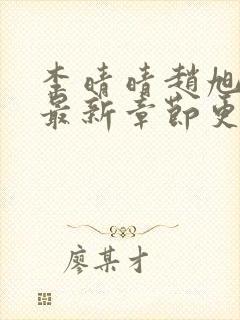 李晴晴趙旭
最新章節更
廖某才